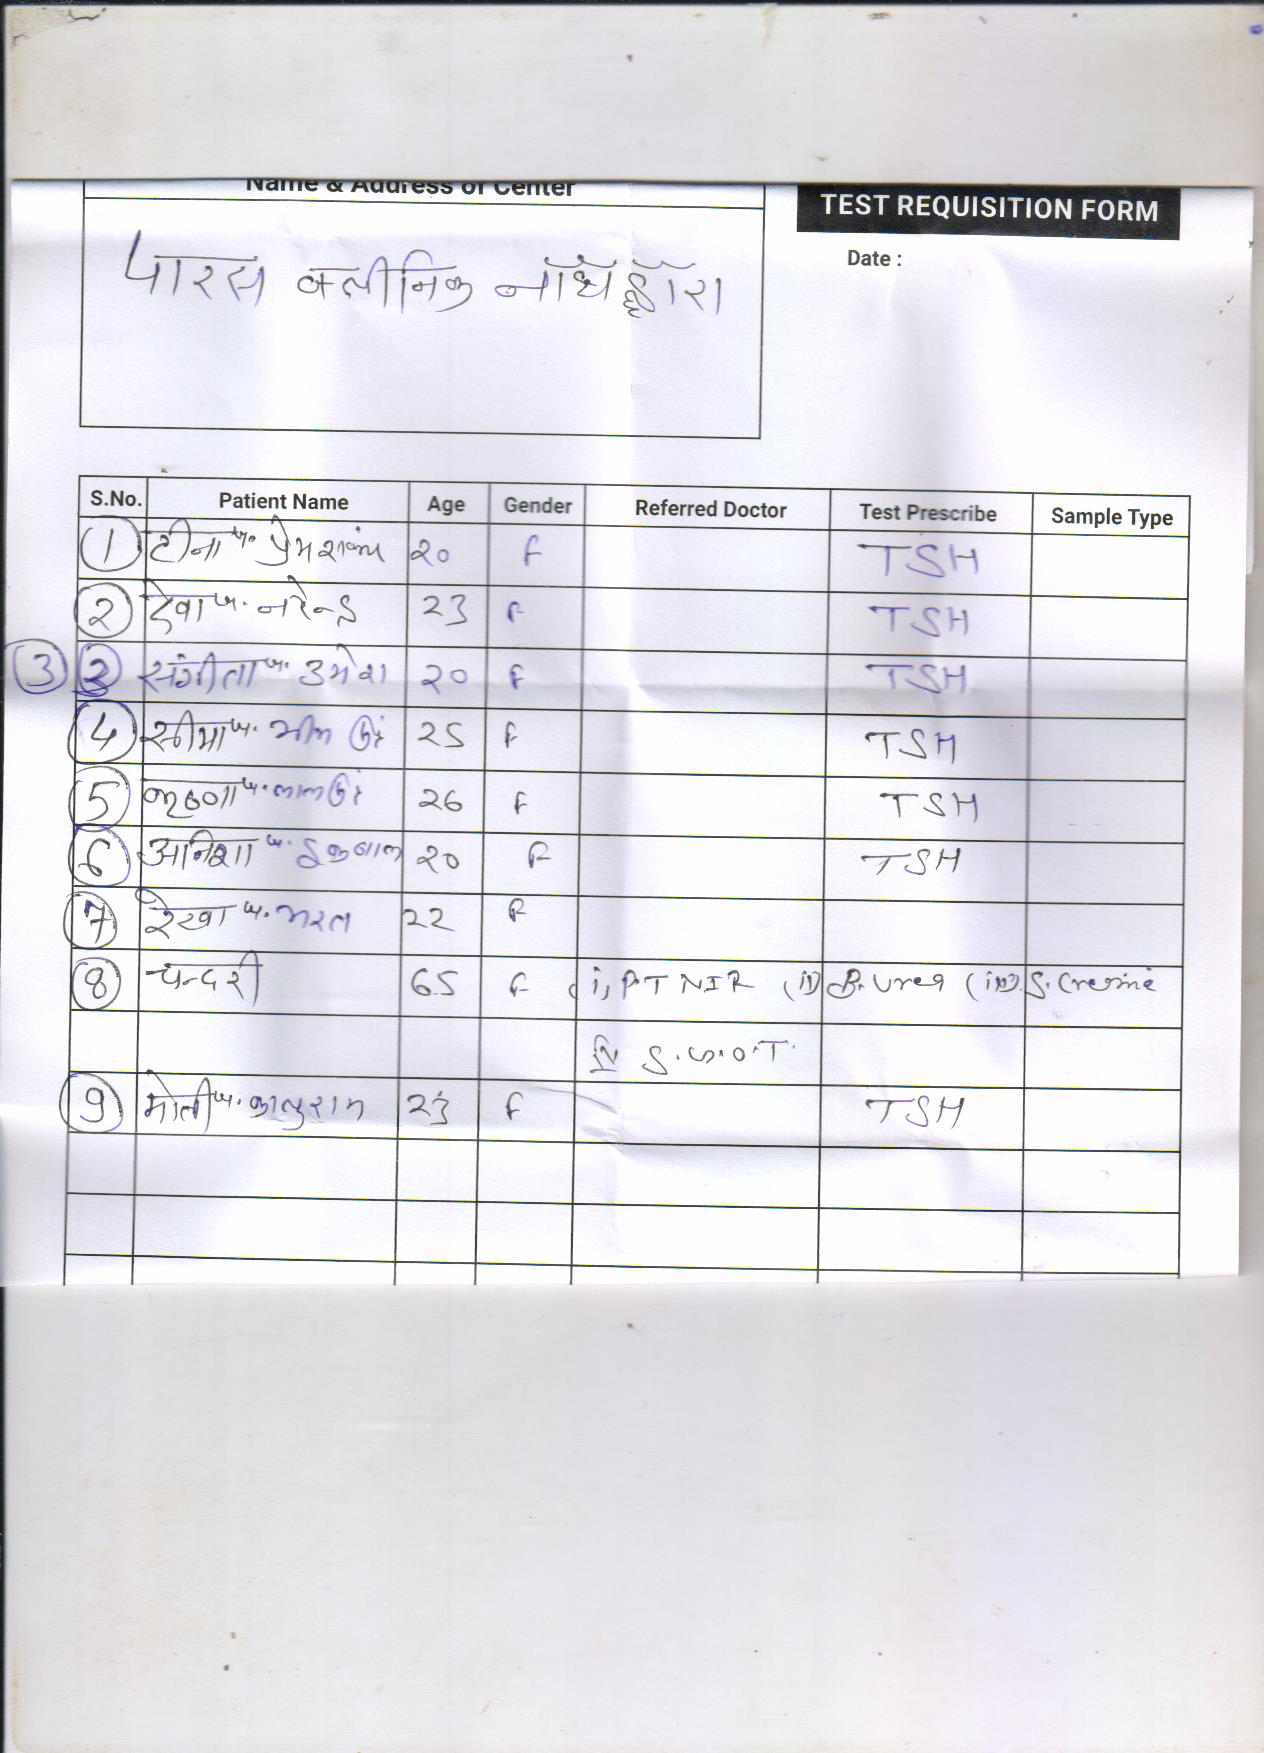 Name & Address of Center
TEST REQUISITION FORM
Date :
पारस क्लीनिक नाथद्वारा
S.No. Patient Name Age Gender Referred Doctor Test Prescribe Sample Type
1 टीना प. प्रेमशंकर 20 F TSH
2 देवा प. नरेन्द्र 23 F TSH
3 3 संगीता प. उमेश 20 F TSH
4 सीमा प. भीम 25 F TSH
5 प. लाल 26 F TSH
6 अनिशा प. इकबाल 20 F TSH
7 रेखा प. भरत 22 F
8 चन्दरी 65 F i, PT NIR (ii) B. Urea (iii) S.
iv S.G.O.T.
9 मोती प. कालुराम 23 F TSH